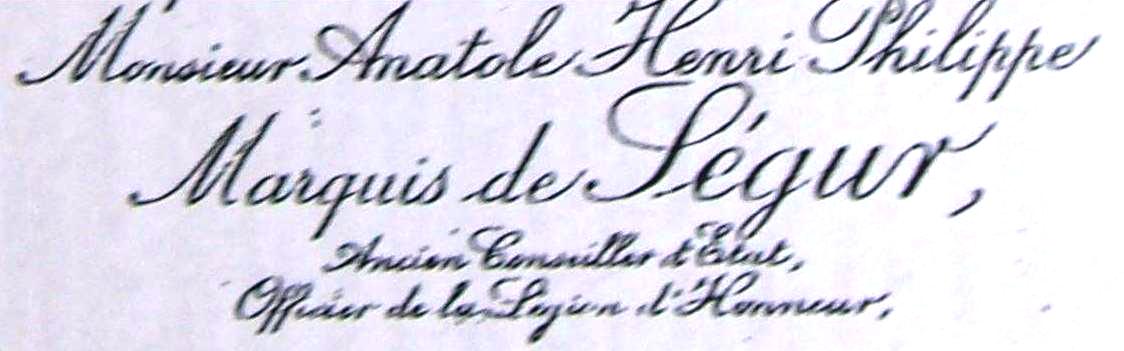 Monsieur Anatole Henri Philippe
Marquis de Ségur,
Ancien Conseiller d'Etat,
Officier de la Légion d'Honneur,